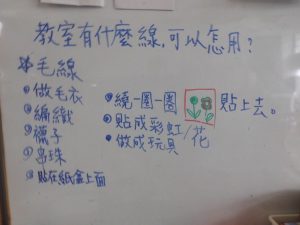 教室有什麼線,可以怎用?
*毛線
•做毛衣
•編織
•襪子
•串珠
•貼在紙盒上面
•繞一圈一圈 貼上去。
•貼成彩虹/花
•做成玩具